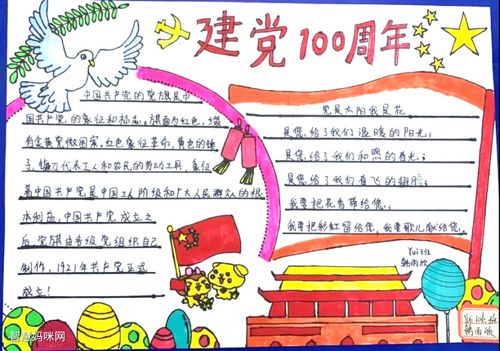 建党100周年
中国共产党的党旗是中
国共产党的象征和标志。旗面为红色，缀
有金黄党徽图案。红色象征革命，黄色的锤
子、镰刀代表工人和农民的劳动工具，象征
着中国共产党是中国工人阶级和广大人民群众的根
本利益，中国共产党成立之
后，党旗由各级党组织自己
制作，1921年共产党正式
成立！
党是太阳我是花
是您给了我们温暖的阳光；
是您给了我们和煦的春光；
是您给了我们奋飞的翅膀；
我要把花香带给您，
我要把彩虹留给您，我要歌儿献给您。
智慧妈咪网